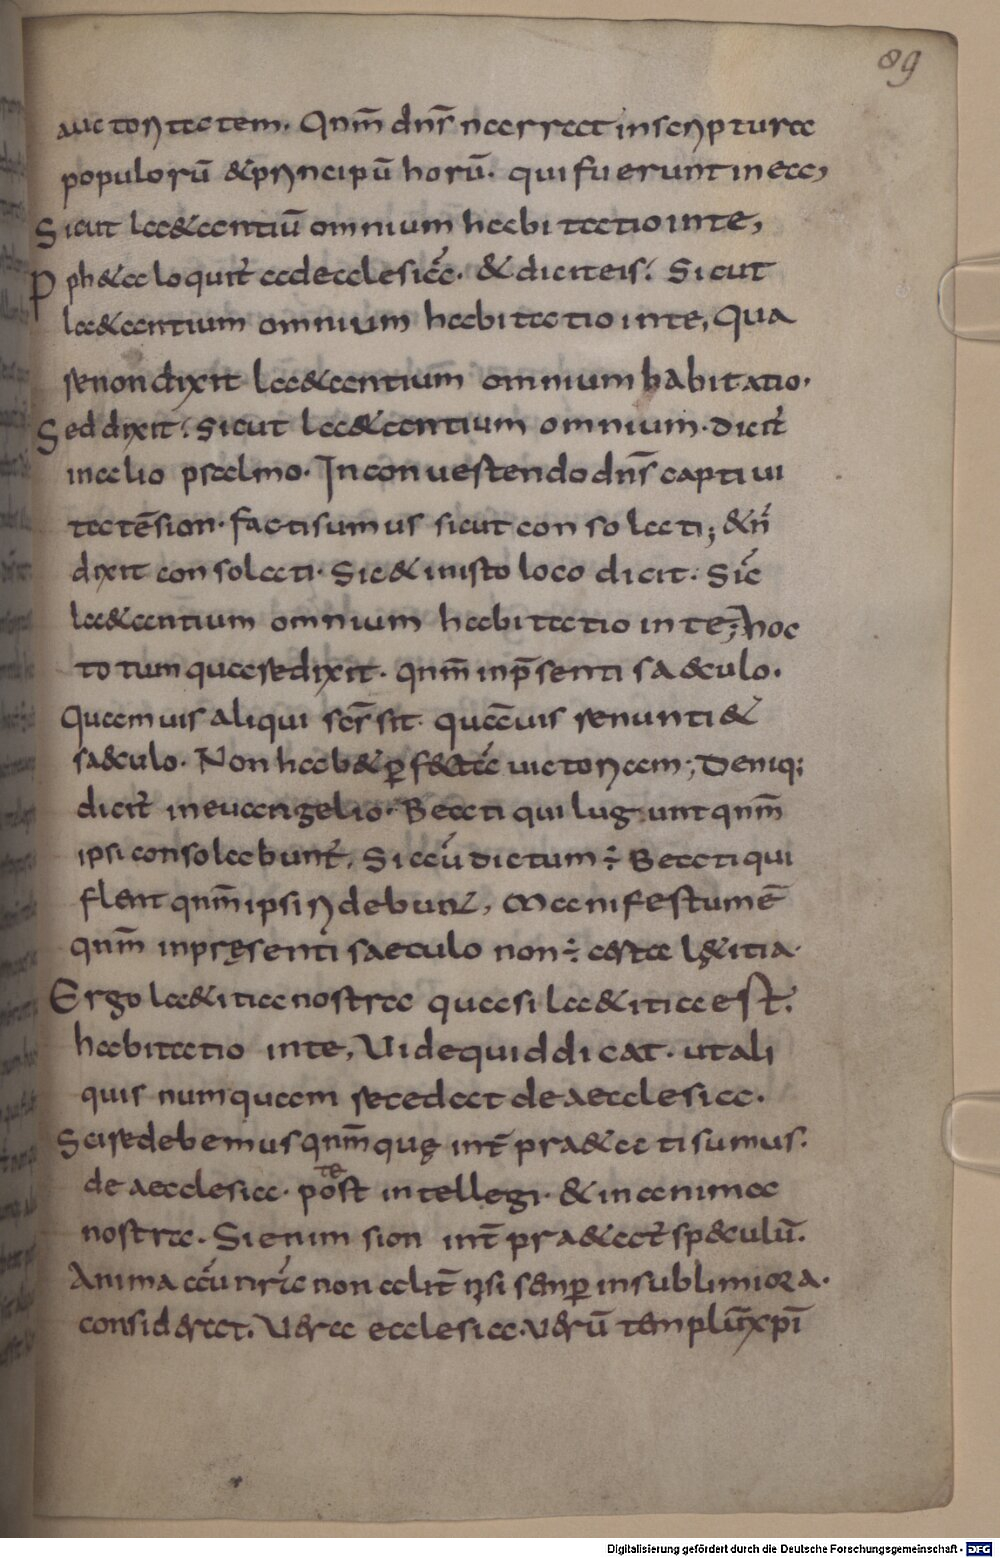 89
auctoritatem. Qnm̄ dn̄s narrat in scriptura
populorū & principū horū. qui fuerunt in ea,
Sicut laetantiū omnium habitatio in te,
Pph&a loquit̄ ad ecclesiā. & dicit eis. Sicut
laetantium omnium habitatio in te, Qua
re non dixit laetantium omnium habitatio.
Sed dixit. sicut laetantium omnium. dicit̄
in alio psalmo. In convertendo dn̄s captivi
tatē sion. facti sumus sicut consolati; & n̄
dixit consolati. Sic & in isto loco dicit. Sic̄
laetantium omnium habitatio in te; hoc
totum quare dixit. qnm̄ in p̄senti saeculo.
Quamvis aliqui scr̄ sit. quāvis renunti&
saeculo. Non hab& p̄fectā victoriam; Deniq;
dicit̄ in euangelio. Beati qui lugunt qnm̄
ipsi consolabunt̄. Si aū dictum ÷ Beati qui
flent qnm̄ ipsi ridebunt, Manifestum ē
qnm̄ in pręsenti saeculo non ÷ certa lętitia.
Ergo laetitia nostra quasi laetitia est.
habitatio in te, Vide quid dicat. ut ali
quis numquam recedat de aecclesia.
Scire debemus qnm̄ quę int̄praetati sumus.
de aecclesia. potest intellegi. & in anima
nostra. Si enim sion int̄praetat̄ speculū.
Anima aū nr̄a non alit̄ nisi semp̄ in sublimiora.
considerat. Vera ecclesia. verū templū xp̄i
Digitalisierung gefördert durch die Deutsche Forschungsgemeinschaft - DFG